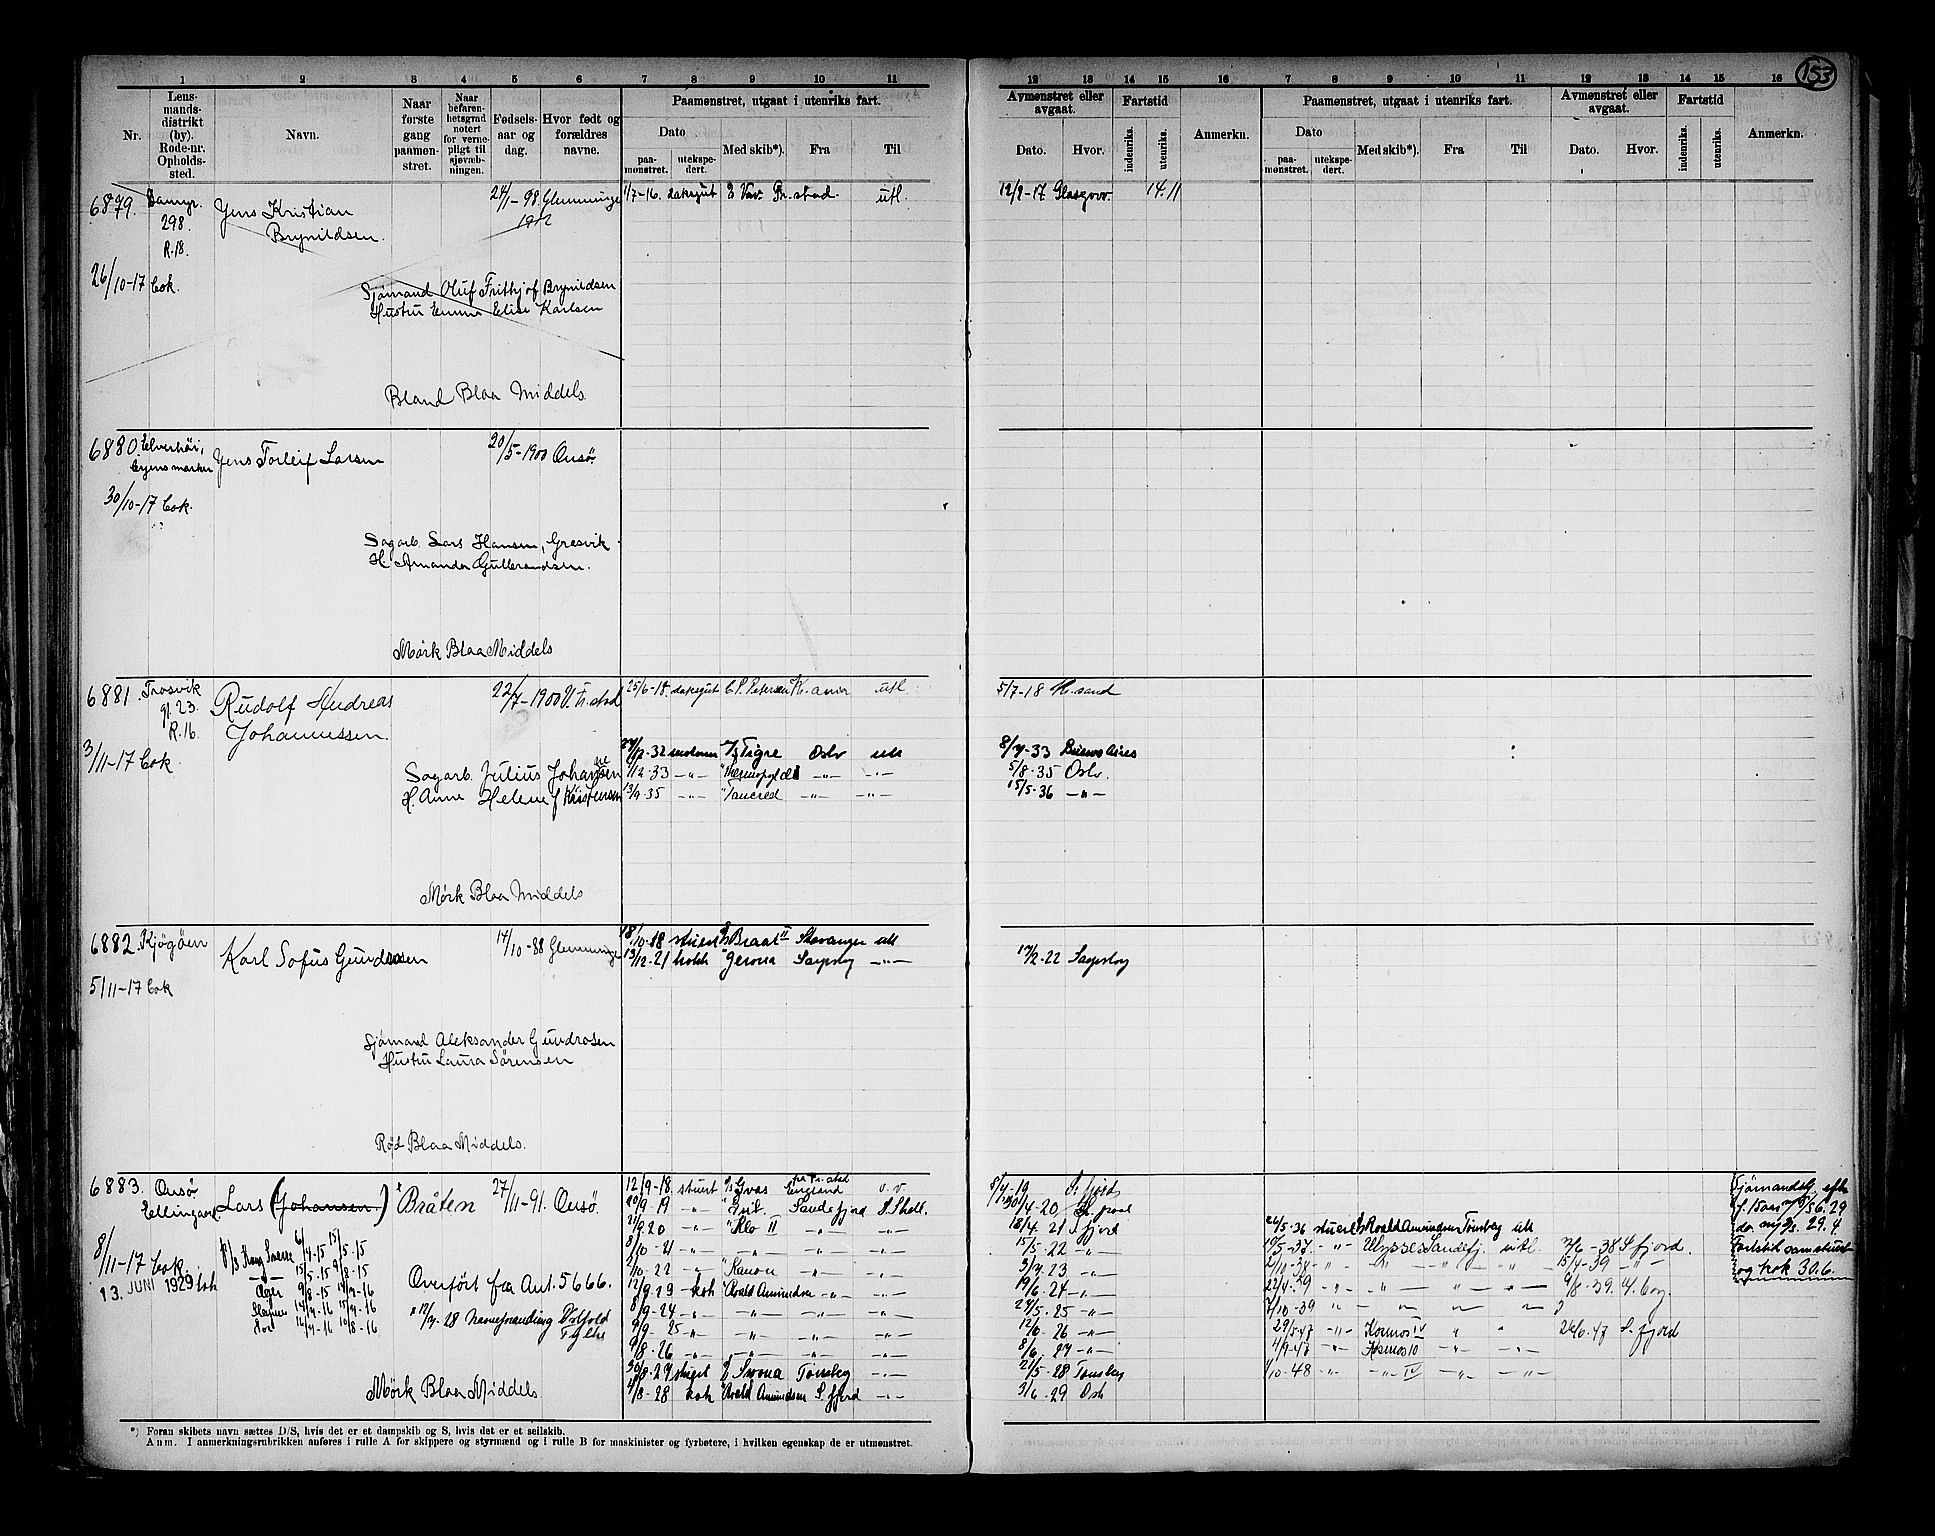 153
1 2 3 4 5 6 7 8 9 10 11
12 13 14 15 16 7 8 9 10 11 12 13 14 15 16
Nr.
Lensmandsdistrikt (by). Rode-nr. Opholdssted.
Navn.
Naar første gang paamønstret.
Naar befarenhetsgrad notert for vernepligt til sjøvæbningen.
Fødselsaar og dag.
Hvor født og forældres navne.
Paamønstret, utgaat i utenriks fart.
Dato
paamønstret.
utekspedert.
Med skib*).
Fra
Til
Avmønstret eller avgaat.
Dato.
Hvor.
Fartstid
indenriks.
utenriks.
Anmerkn.
Paamønstret, utgaat i utenriks fart.
Dato
paamønstret.
utekspedert.
Med skib*).
Fra
Til
Avmønstret eller avgaat.
Dato.
Hvor.
Fartstid
indenriks.
utenriks.
Anmerkn.
6879. Jens Kristian Brynildsen 24/1-98 Glemminge
298.
R.18.
1/7-16. dæksgut Fr.stad utl. 12/2-17 Glasgow. 14.11
26/10-17 Cok.
Sjømand Oluf Frithjof Brynildsen
Hustru Emma Elise Karlsen
Bland Blaa Middels.
6880. Jens Torleif Larsen 20/5-1900 Onsö.
30/10-17 Cok.
Sagarb. Lars Hansen, Gresvik
H. Amanda Gulbrandsen.
Mörk Blaa Middels
6881. Trosvik Rudolf Andreas Johannessen. 22/7-1900 V. Fr.stad
gt. 23.
R.16.
25/6-18. dæksgut C.P. Petersen Kr.ania utl. 5/7-18 Kr.sand
3/11-17 Cok.
Tigre Oslo utl 8/7-33 Buenos Aires
1/12-33 -"- Thermopylæ -"- -"- 5/8-35 Oslo.
13/9-35 -"- Tancred -"- -"- 15/5-36 -"-
Sagarb. Julius Johansen
H. Anna Helene Kristensen
Mørk Blaa Middels
6882. Kjøgöen Karl Sofus Gundrosen 14/10-88 Glemminge
18/10-18 stuert Braat II Stavanger utl
13/12-21 kokk Gerona Sarpsborg -"- 17/2-22 Sarpsborg
5/11-17 Cok
Sjømand Aleksander Gundrosen
Hustru Laura Sørensen
Rød Blaa Middels.
6883. Onsö Lars (Johansen.) Bråten 27/11-91. Onsö.
8/11-17 Cok.
13. JUNI 1929 kok
Kong Sverre 6/4-15 15/5-15
-"- 15/5-15 9/8-15
Ager 9/8-15
Overført fra Ant. 5666.
17/7-28 Navneforandring Østfold Fylke
Mørk Blaa Middels
12/9-18. stuert Gvas fra Fr.stad England
20/9 19 -"- Sandefjord
2/9 20 -"- Klo II -"-
8/10-21 -"- -"- -"- -"-
2/10-22 -"- Ranon -"- -"-
12/9-29 kok Roald Amundsen -"-
8/9-24 -"- -"- -"- -"-
9/9-25 -"- -"- -"- -"-
9/8-26 -"- -"- -"- -"-
30/8-27 stuert Svona Tønsbg -"-
4/8-28 kok Roald Amundsen S.fjord -"-
8/4-19 S.fjord
30/4-20
18/4-21 S.fjord
15/5-22 -"-
3/7-23 -"-
19/6-24 -"-
27/5-25 -"-
12/6-26 -"-
8/6-27 -"-
21/5-28 Tønsbg
3/6-29 Oslo
26/5-36 stuert Roald Amundsen Tønsbg utl
19/5-37 -"- Ulysses Sandefj. utl. 2/6-38 S.fjord.
2/10-38 -"- -"- -"- -"- 15/4-39 -"-
22/4-39 -"- -"- -"- 9/8-39
2/10-39 -"- -"- -"-
29/5-47 -"- Kosmos IV " " 26/6-47 S.fjord
4/9-47 -"- Kosmos 10 -"- -"-
1/10-48 -"- -"- IV -"- -"-
Fartstid som stuert
og kok 30.6.
*) Foran skibets navn sættes D/S, hvis det er et dampskib og S, hvis det er et seilskib.
Anm. I anmerkningsrubrikken anføres i rulle A for skippere og styrmænd og i rulle B for maskinister og fyrbøtere, i hvilken egenskap de er utmønstret.